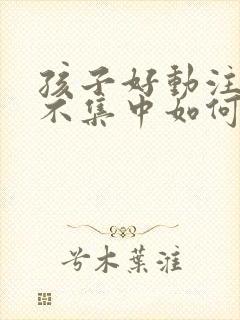 孩子好動注
不集中如何
兮木葉漼